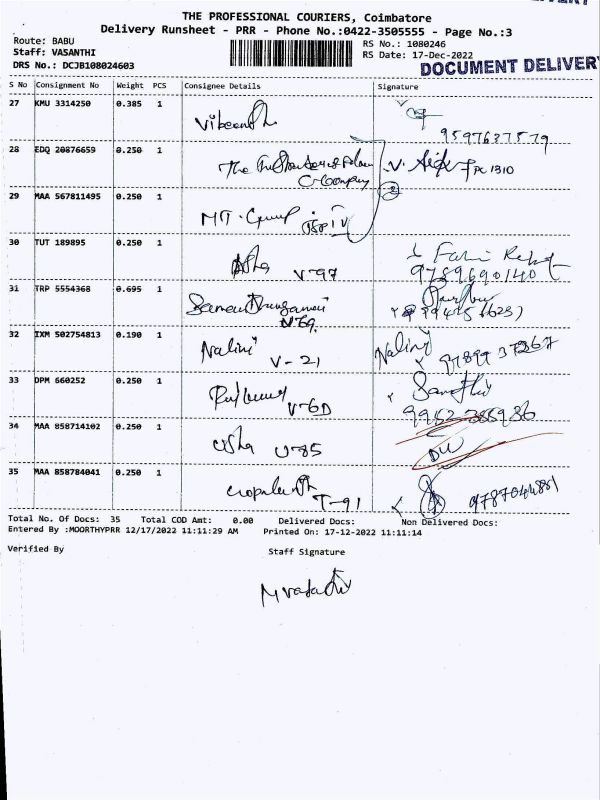 THE PROFESSIONAL COURIERS, Coimbatore
Delivery Runsheet - PRR - Phone No.:0422-3505555 - Page No.:3
Route: BABU
Staff: VASANTHI
DRS No.: DCJB108024603
RS No.: 1080246
RS Date: 17-Dec-2022
DOCUMENT DELIVER
S No Consignment No Weight PCS Consignee Details Signature
27 KMU 3314250 0.385 1
9597637579
28 EDQ 20876659 0.250 1 The
29 MAA 567811495 0.250 1 MT.
30 TUT 189895 0.250 1 Asha V-97
9789690140
31 TRP 5554368 0.695 1
V69.
32 IXM 502754813 0.190 1 Nalini V-21 Nalini
33 DPM 660252 0.250 1 V-6D
34 MAA 858714102 0.250 1 Usha U-85
35 MAA 858784041 0.250 1 T-91
Total No. Of Docs: 35 Total COD Amt: 0.00 Delivered Docs: Non Delivered Docs:
Entered By :MOORTHYPRR 12/17/2022 11:11:29 AM Printed On: 17-12-2022 11:11:14
Verified By Staff Signature